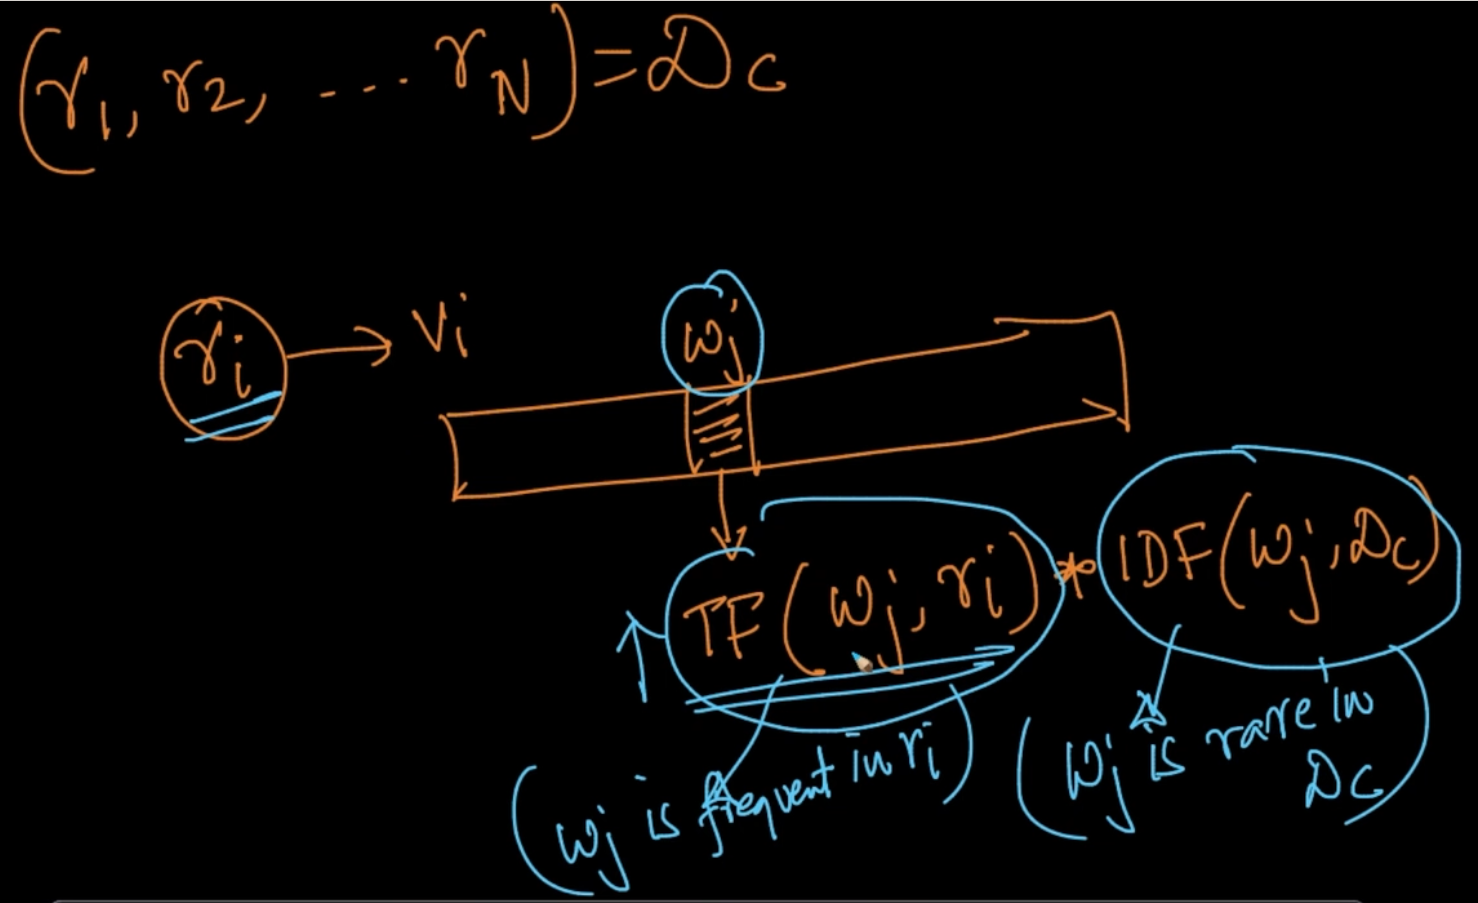 (r1, r2, ... rN) = Dc
ri → vi
wj
TF(wj, ri) * IDF(wj, Dc)
(wj is frequent in ri) (wj is rare in Dc)